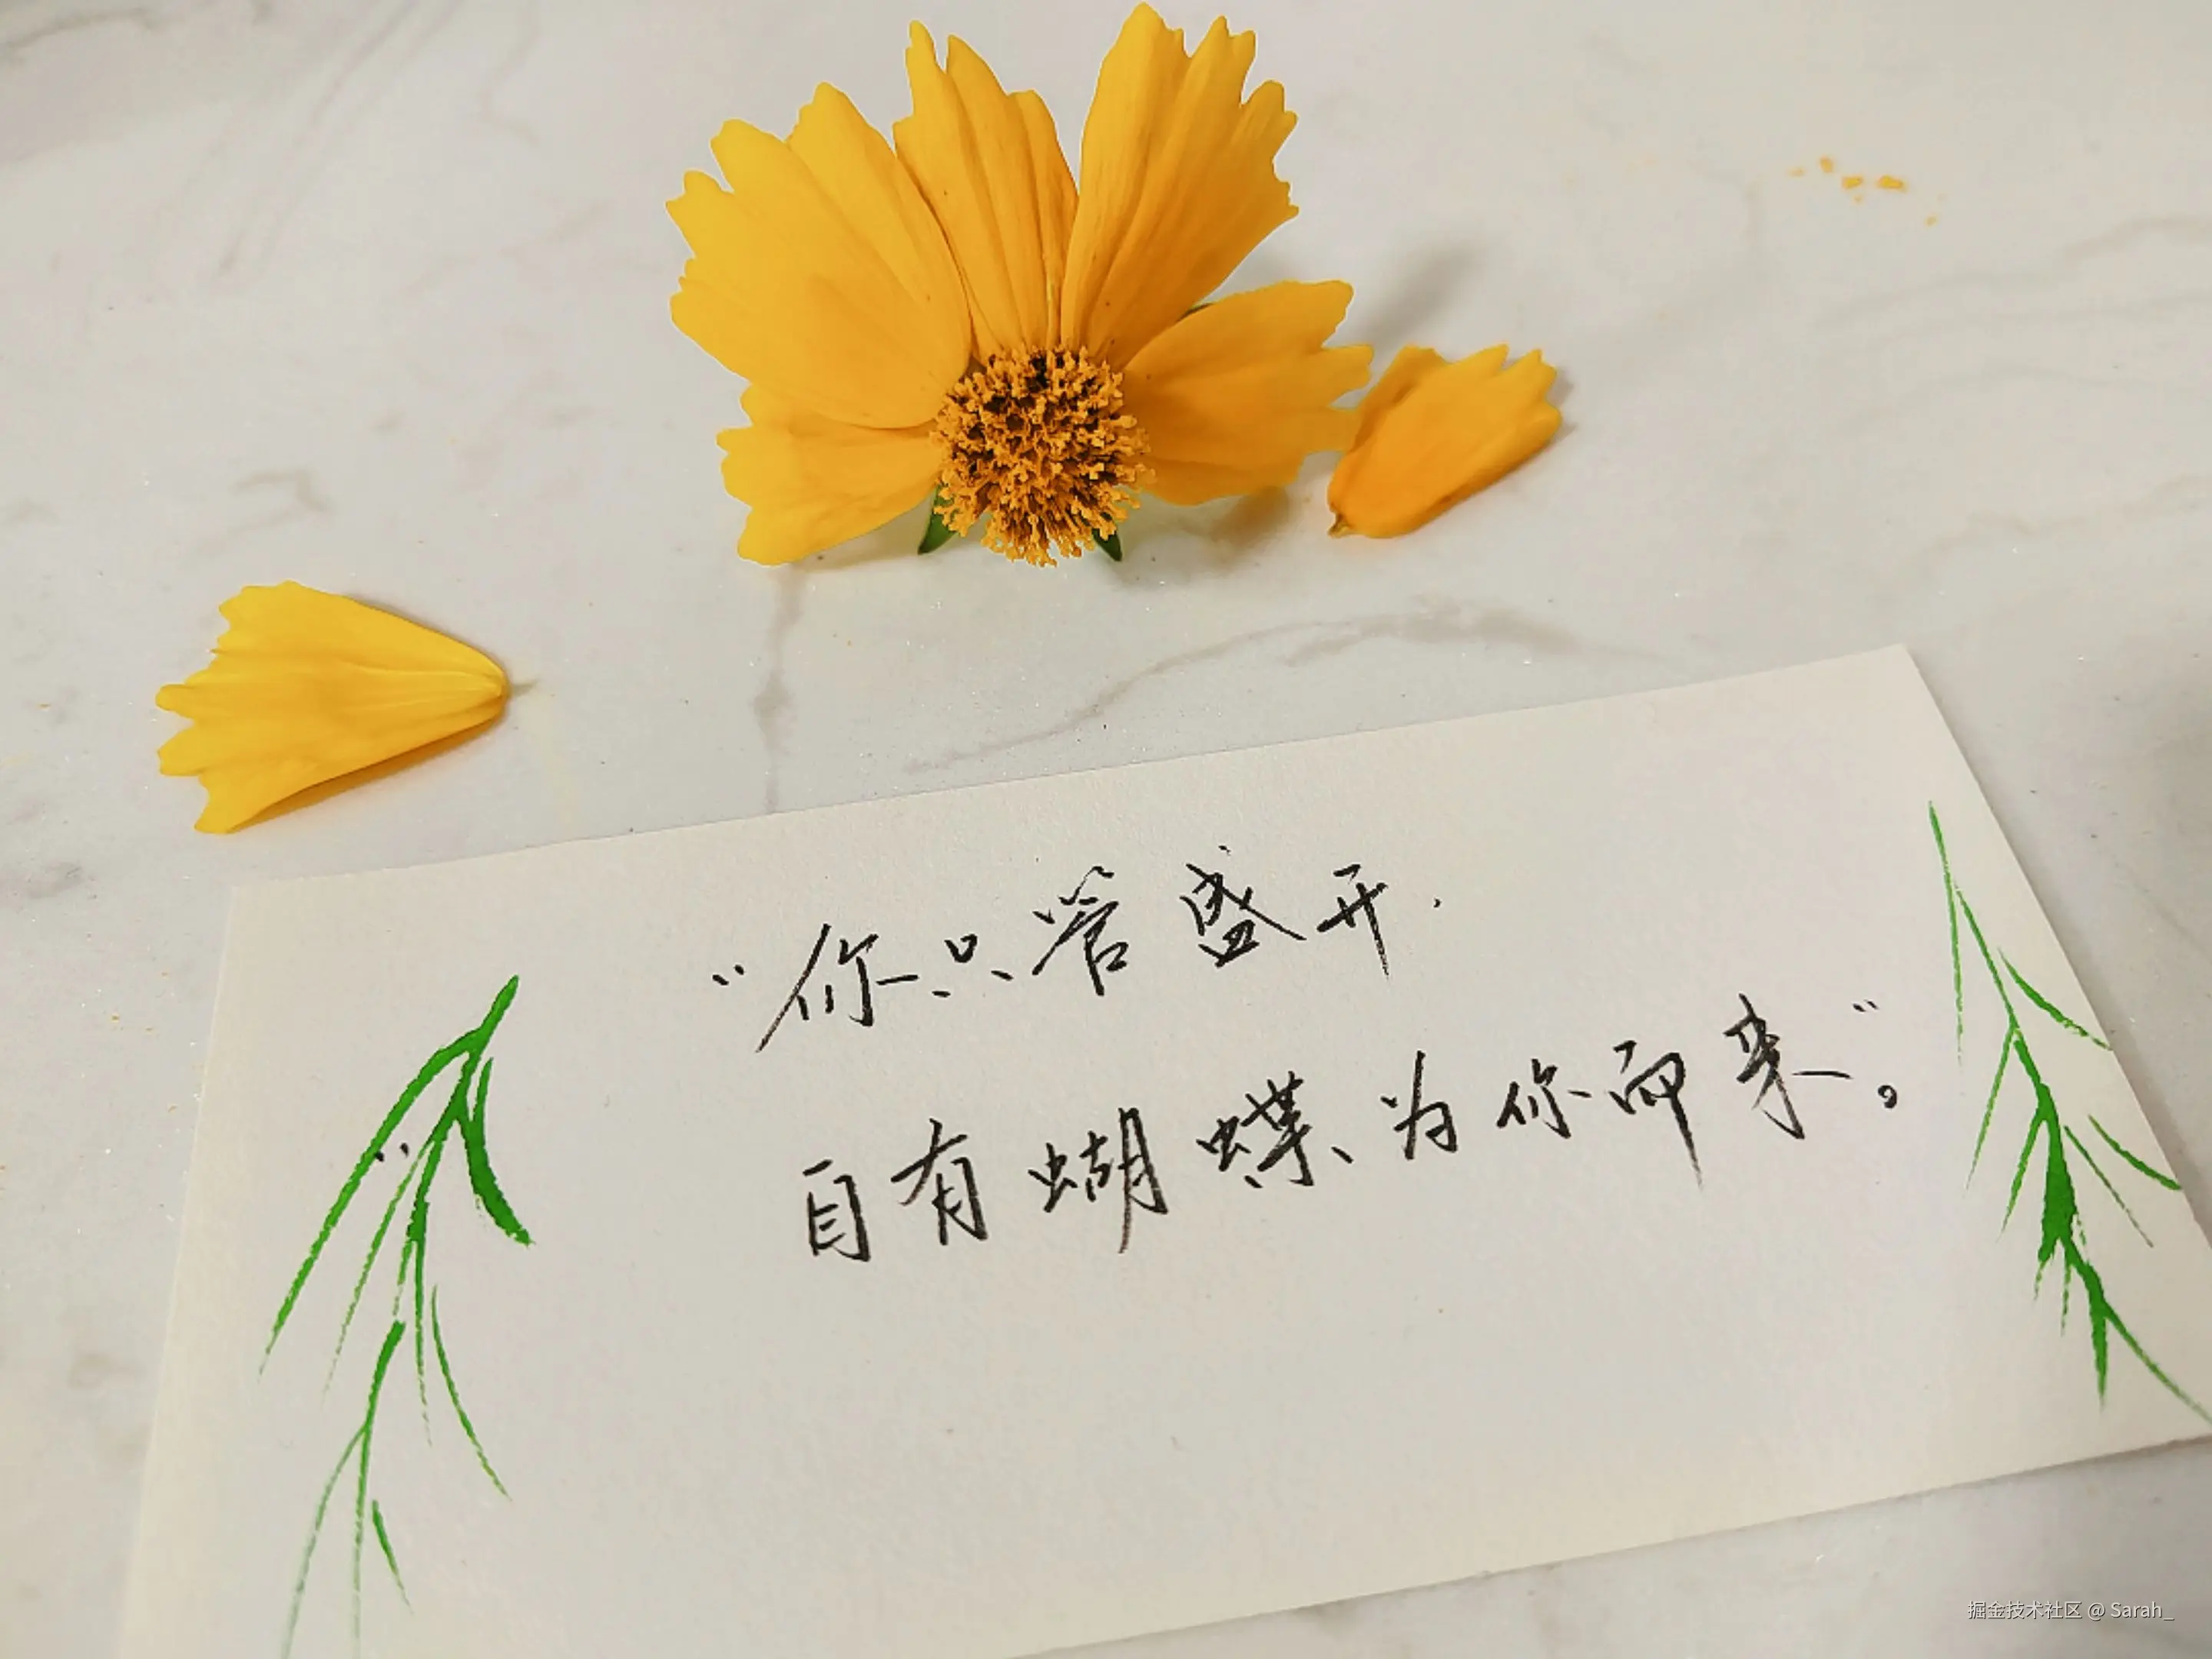 “你只管盛开，
自有蝴蝶为你而来”。
掘金技术社区 @ Sarah_